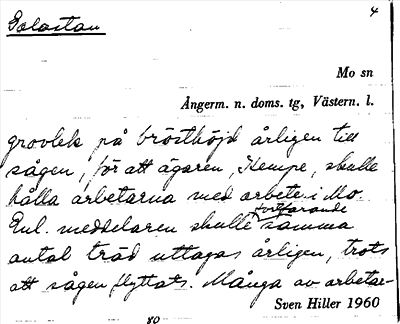 4
Golastan
Mo sn
Ångerm. n. doms. tg, Västern. l.
grovlek på brösthöjd årligen till
sågen, för att ägaren, Kempe, skulle
hålla arbetarna med arbete i Mo.
fortfarande
Enl. meddelaren skulle samma
antal träd uttagas årligen, trots
att sågen flyttats. Många av arbetar-
Sven Hiller 1960
80